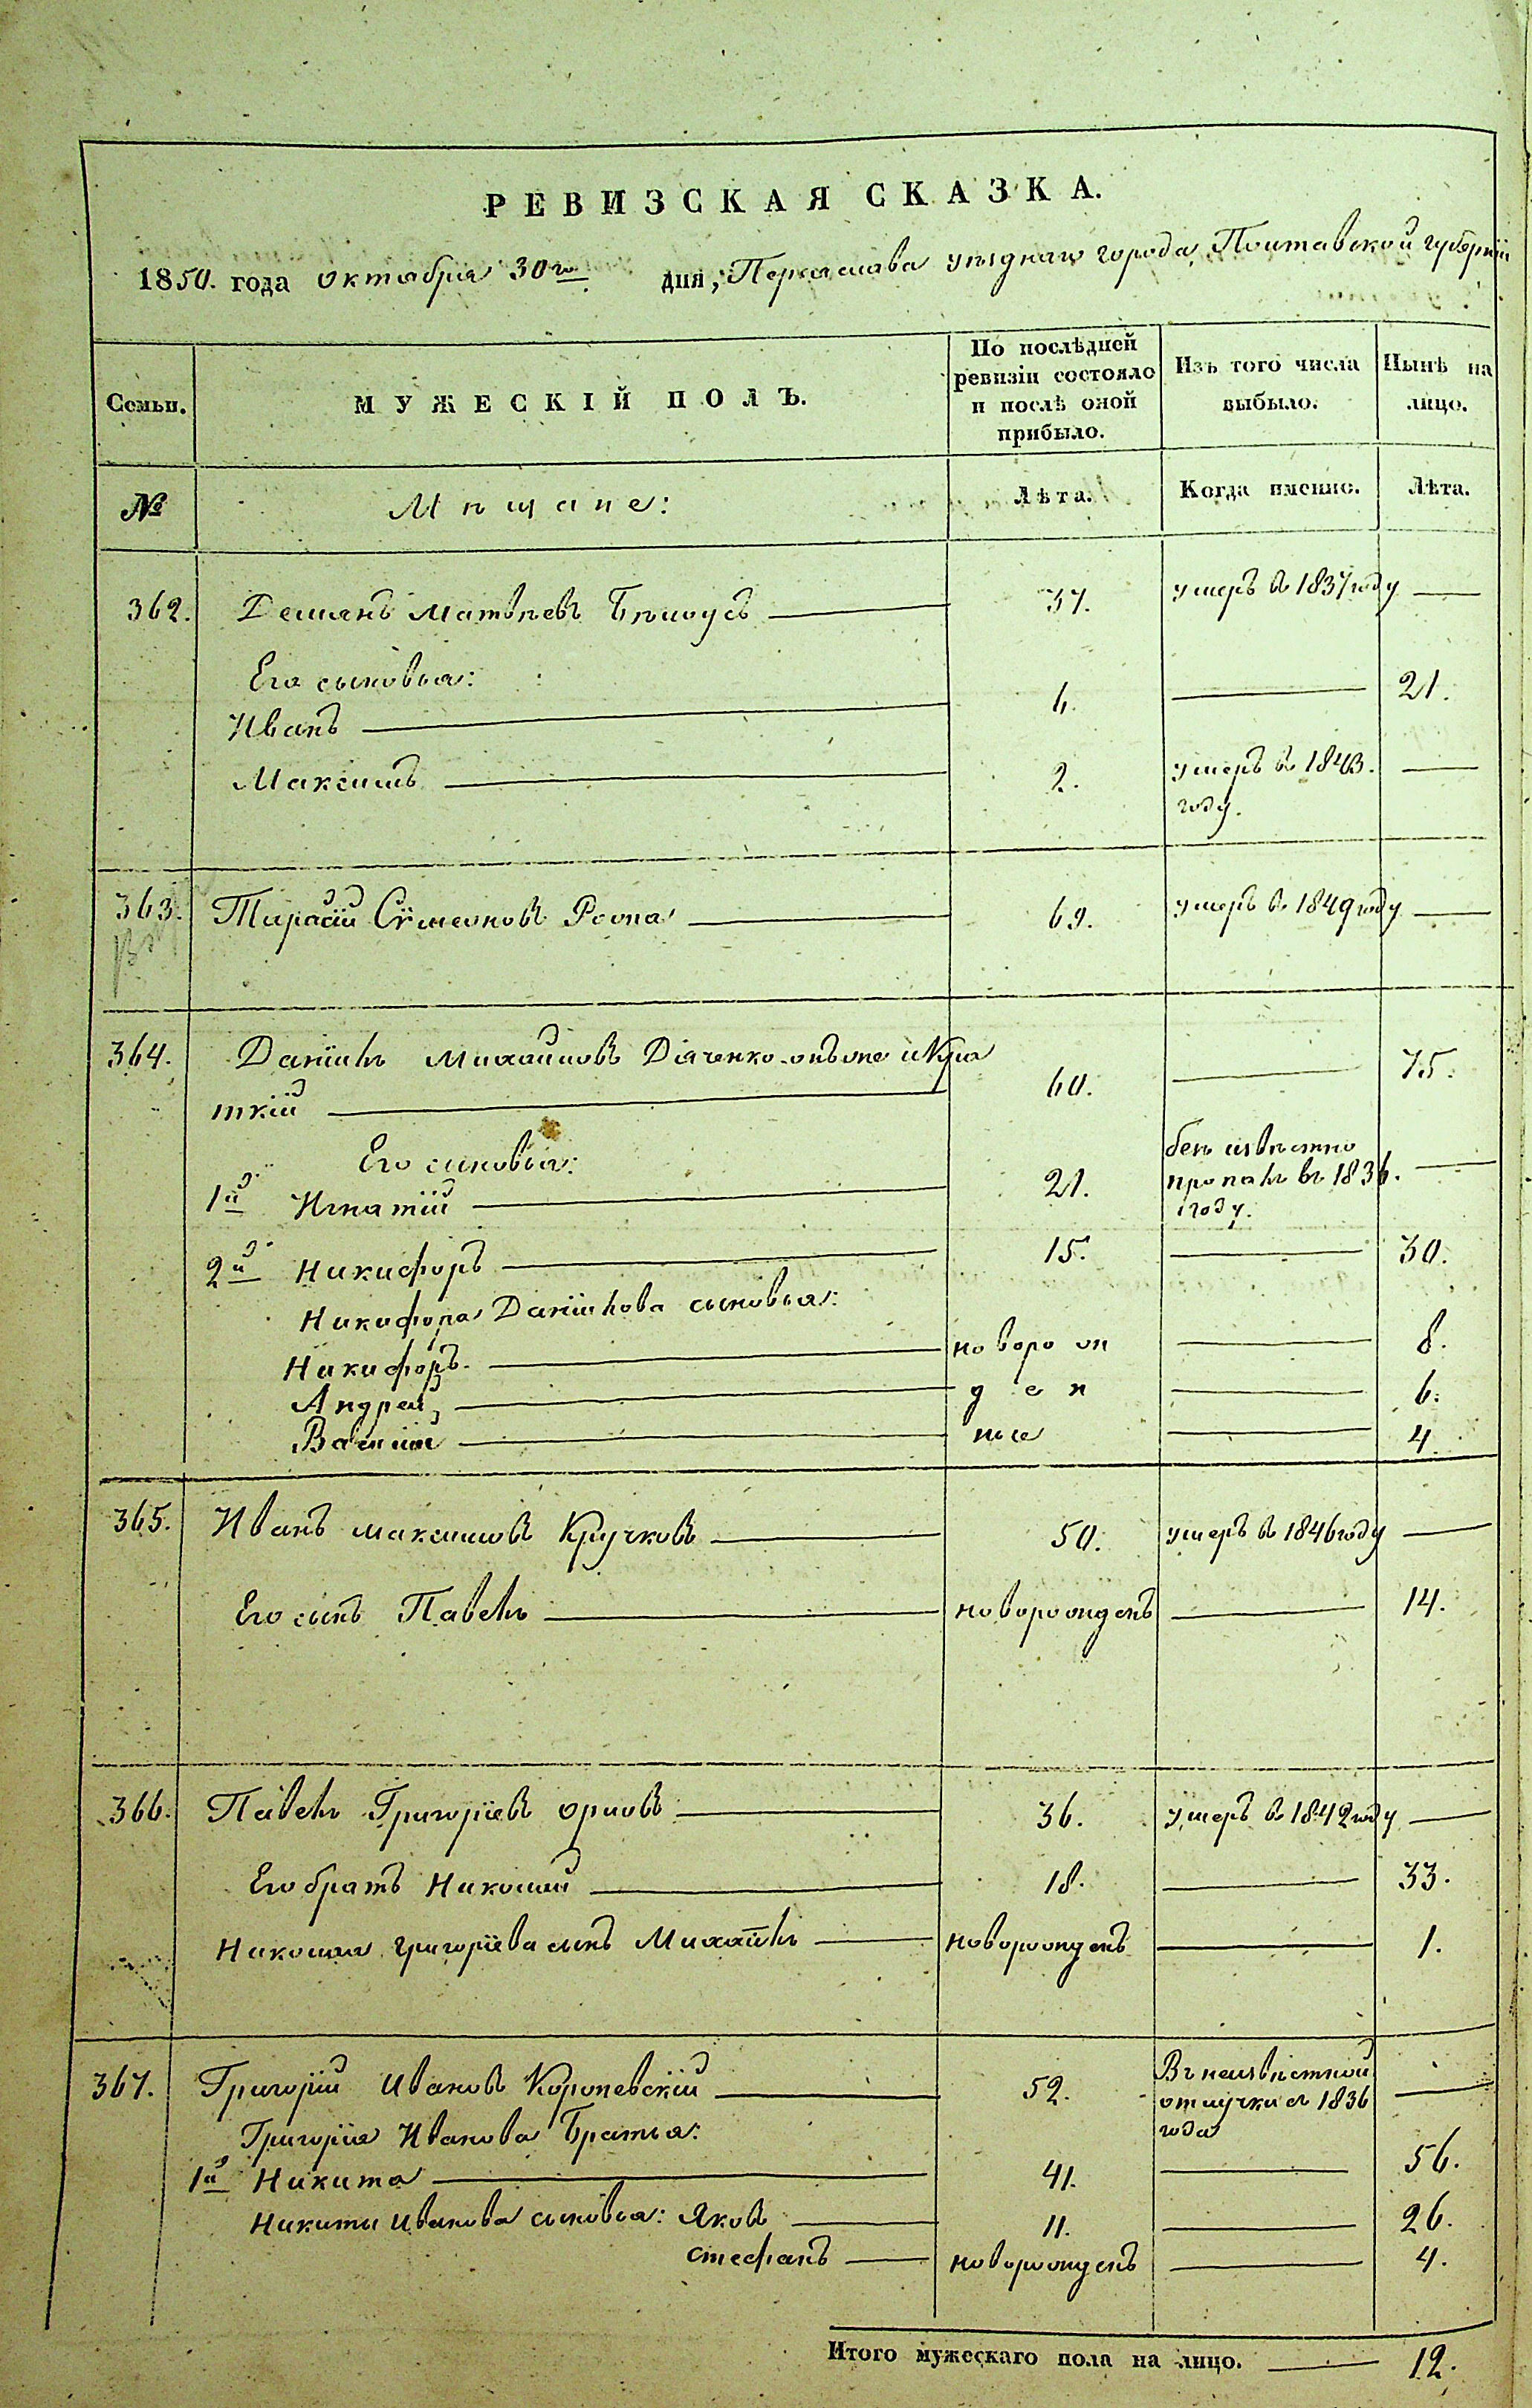 РЕВИЗСКАЯ СКАЗКА.
1850. года октября 30го дня, Переяслава уѣзднаго города, Полтавской губерніи
Семьи.
МУЖЕСКІЙ ПОЛЪ.
По послѣдней
ревизіи состояло
и послѣ оной
прибыло.
Изъ того числа
выбыло.
Нынѣ на
лицо.
№
Мѣщане:
Лѣта.
Когда именно.
Лѣта.
362. Демьянъ Матвѣевъ Бѣлоусъ 37. умеръ въ 1837 году
Его сыновья:
Иванъ 6. 21.
Максимъ 2. умеръ въ 1843.
году.
363. Тарасій Сѵмеоновъ 69. умеръ въ 1849 году
364. Даніилъ Михайловъ Діяченко онъ же и Кра
ткій 60. 75.
Его сыновья:
1й Игнатій 21. безъ извѣстно
пропалъ въ 1836.
году.
2й Никифоръ 15. 30.
Никифора Даніилова сыновья:
Никифоръ. новорож 8.
Андрей, ден 6.
Василій ные 4.
365. Иванъ Максимовъ Кручковъ 50. умеръ въ 1846 году
Его сынъ Павелъ новорожденъ 14.
366. Павелъ Григоріевъ Орловъ 36. умеръ въ 1842 году
Его братъ Николай 18. 33.
Николая Григоріева сынъ Михаилъ новорожденъ 1.
367. Григорій Ивановъ Короневскій 52. Въ неизвѣстной
отлучки съ 1836
года
Григорія Иванова Братья:
1й Никита 41. 56.
Никиты Иванова сыновья: Яковъ 11. 26.
Стефанъ новорожденъ 4.
Итого мужескаго пола на лицо. 12.